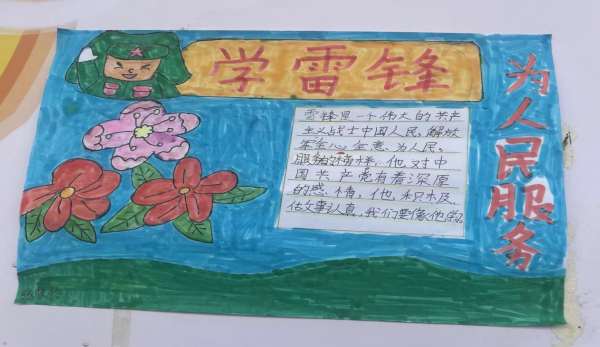 学雷锋
为人民服务
雷锋是一个伟大的共产
主义战士中国人民,解放
军全心全意为人民,
服务的榜样,他对中
国共产党有着深厚
的感情,他,积极
做事认真,我们要像他学